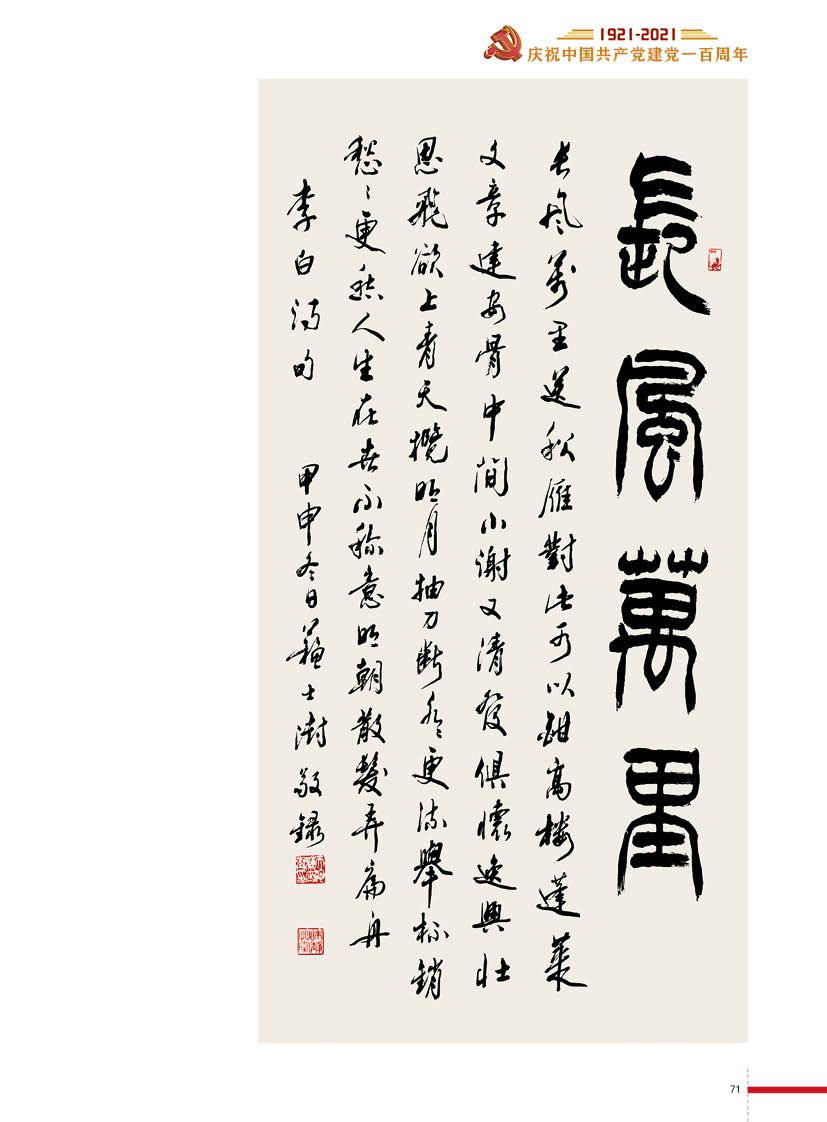 1921-2021
庆祝中国共产党建党一百周年
長風萬里
长风萬里送秋雁對此可以酣高樓蓬萊
文章建安骨中間小謝又清發俱懷逸興壯
思飛欲上青天攬明月抽刀断水水更流舉杯銷
愁愁更愁人生在世不称意明朝散髮弄扁舟
李白詩句 甲申冬日蘇士澍敬錄
71